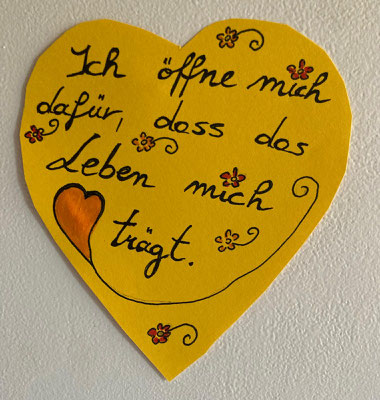 Ich öffne mich
dafür, dass das
Leben mich
trägt.